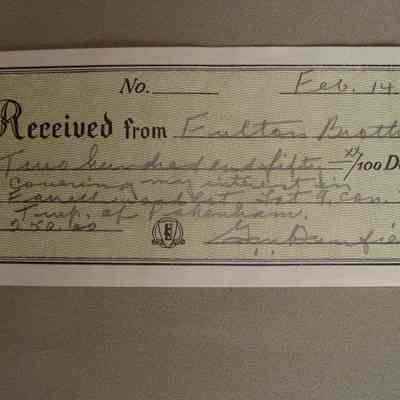 No. Feb. 14
Received from Fulton Broth
Two hundred and fifty xx/100 D
covering my interest in
Lot 9, Con.
Twp. of Pakenham.
250.00 Geo.